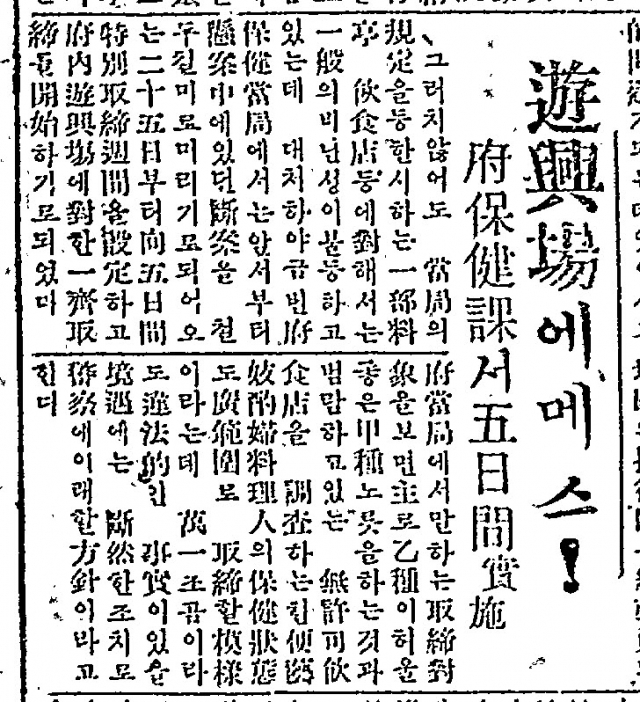 遊興場에메스!
府保健課서五日間實施
、그러치않어도 當局의
規定을등한시하는一部料
亭 飮食店등에對해서는
一般의비난성이불등하고
있는데 대처하야금번府
保健當局에서는앞서부터
懸案中에있던斷案을 철
두철미로미리기로되어오
는二十五日부터向五日間
特別取締週間을設定하고
府內遊興場에對한一齊取
締를開始하기로되었다
府當局에서만하는取締對
象을보면主로乙種이허울
좋은甲種노릇을하는것과
범람하고있는 無許可飮
食店을 調査하는한便
妓酌婦料理人의保健狀態
도廣範圍로 取締할模樣
이라는데 萬一조곰이라
도違法的인 事實이있을
境遇에는 斷然한조치로
警察에이래할方針이라고
한다